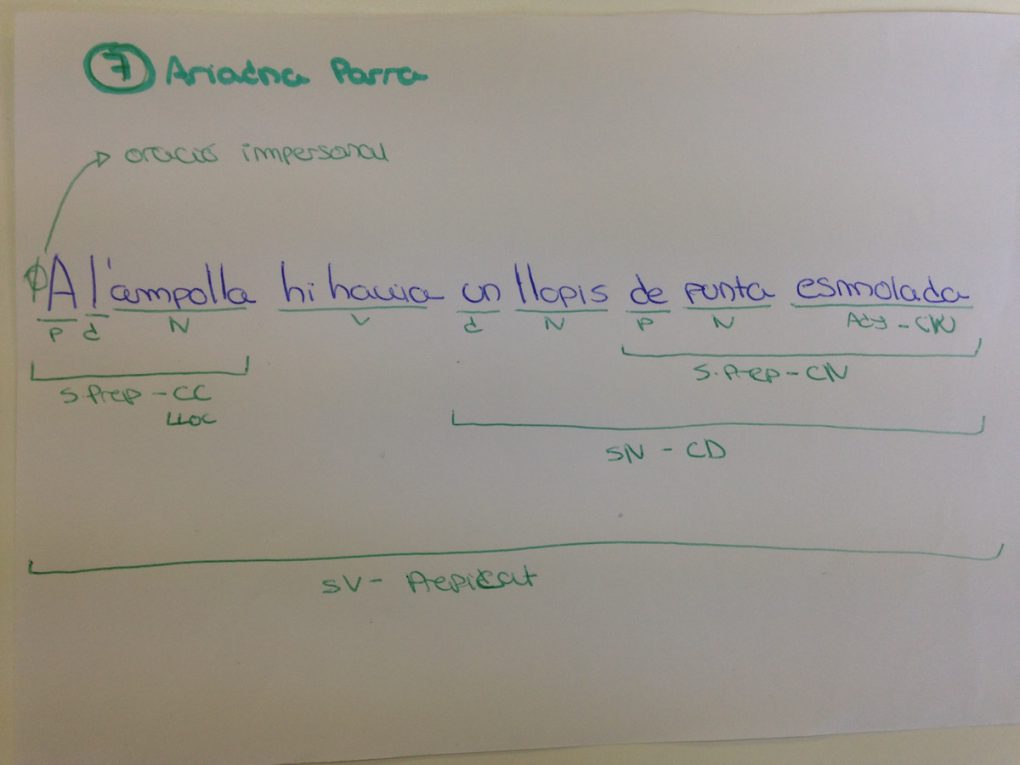 7 Ariadna Parra
oració impersonal
Ø A l'ampolla hi havia un llapis de punta esmolada
P d N V d N P N Adj - CN
S. Prep - CN
S. Prep - CC
LLOC
SN - CD
SV - Prepicat